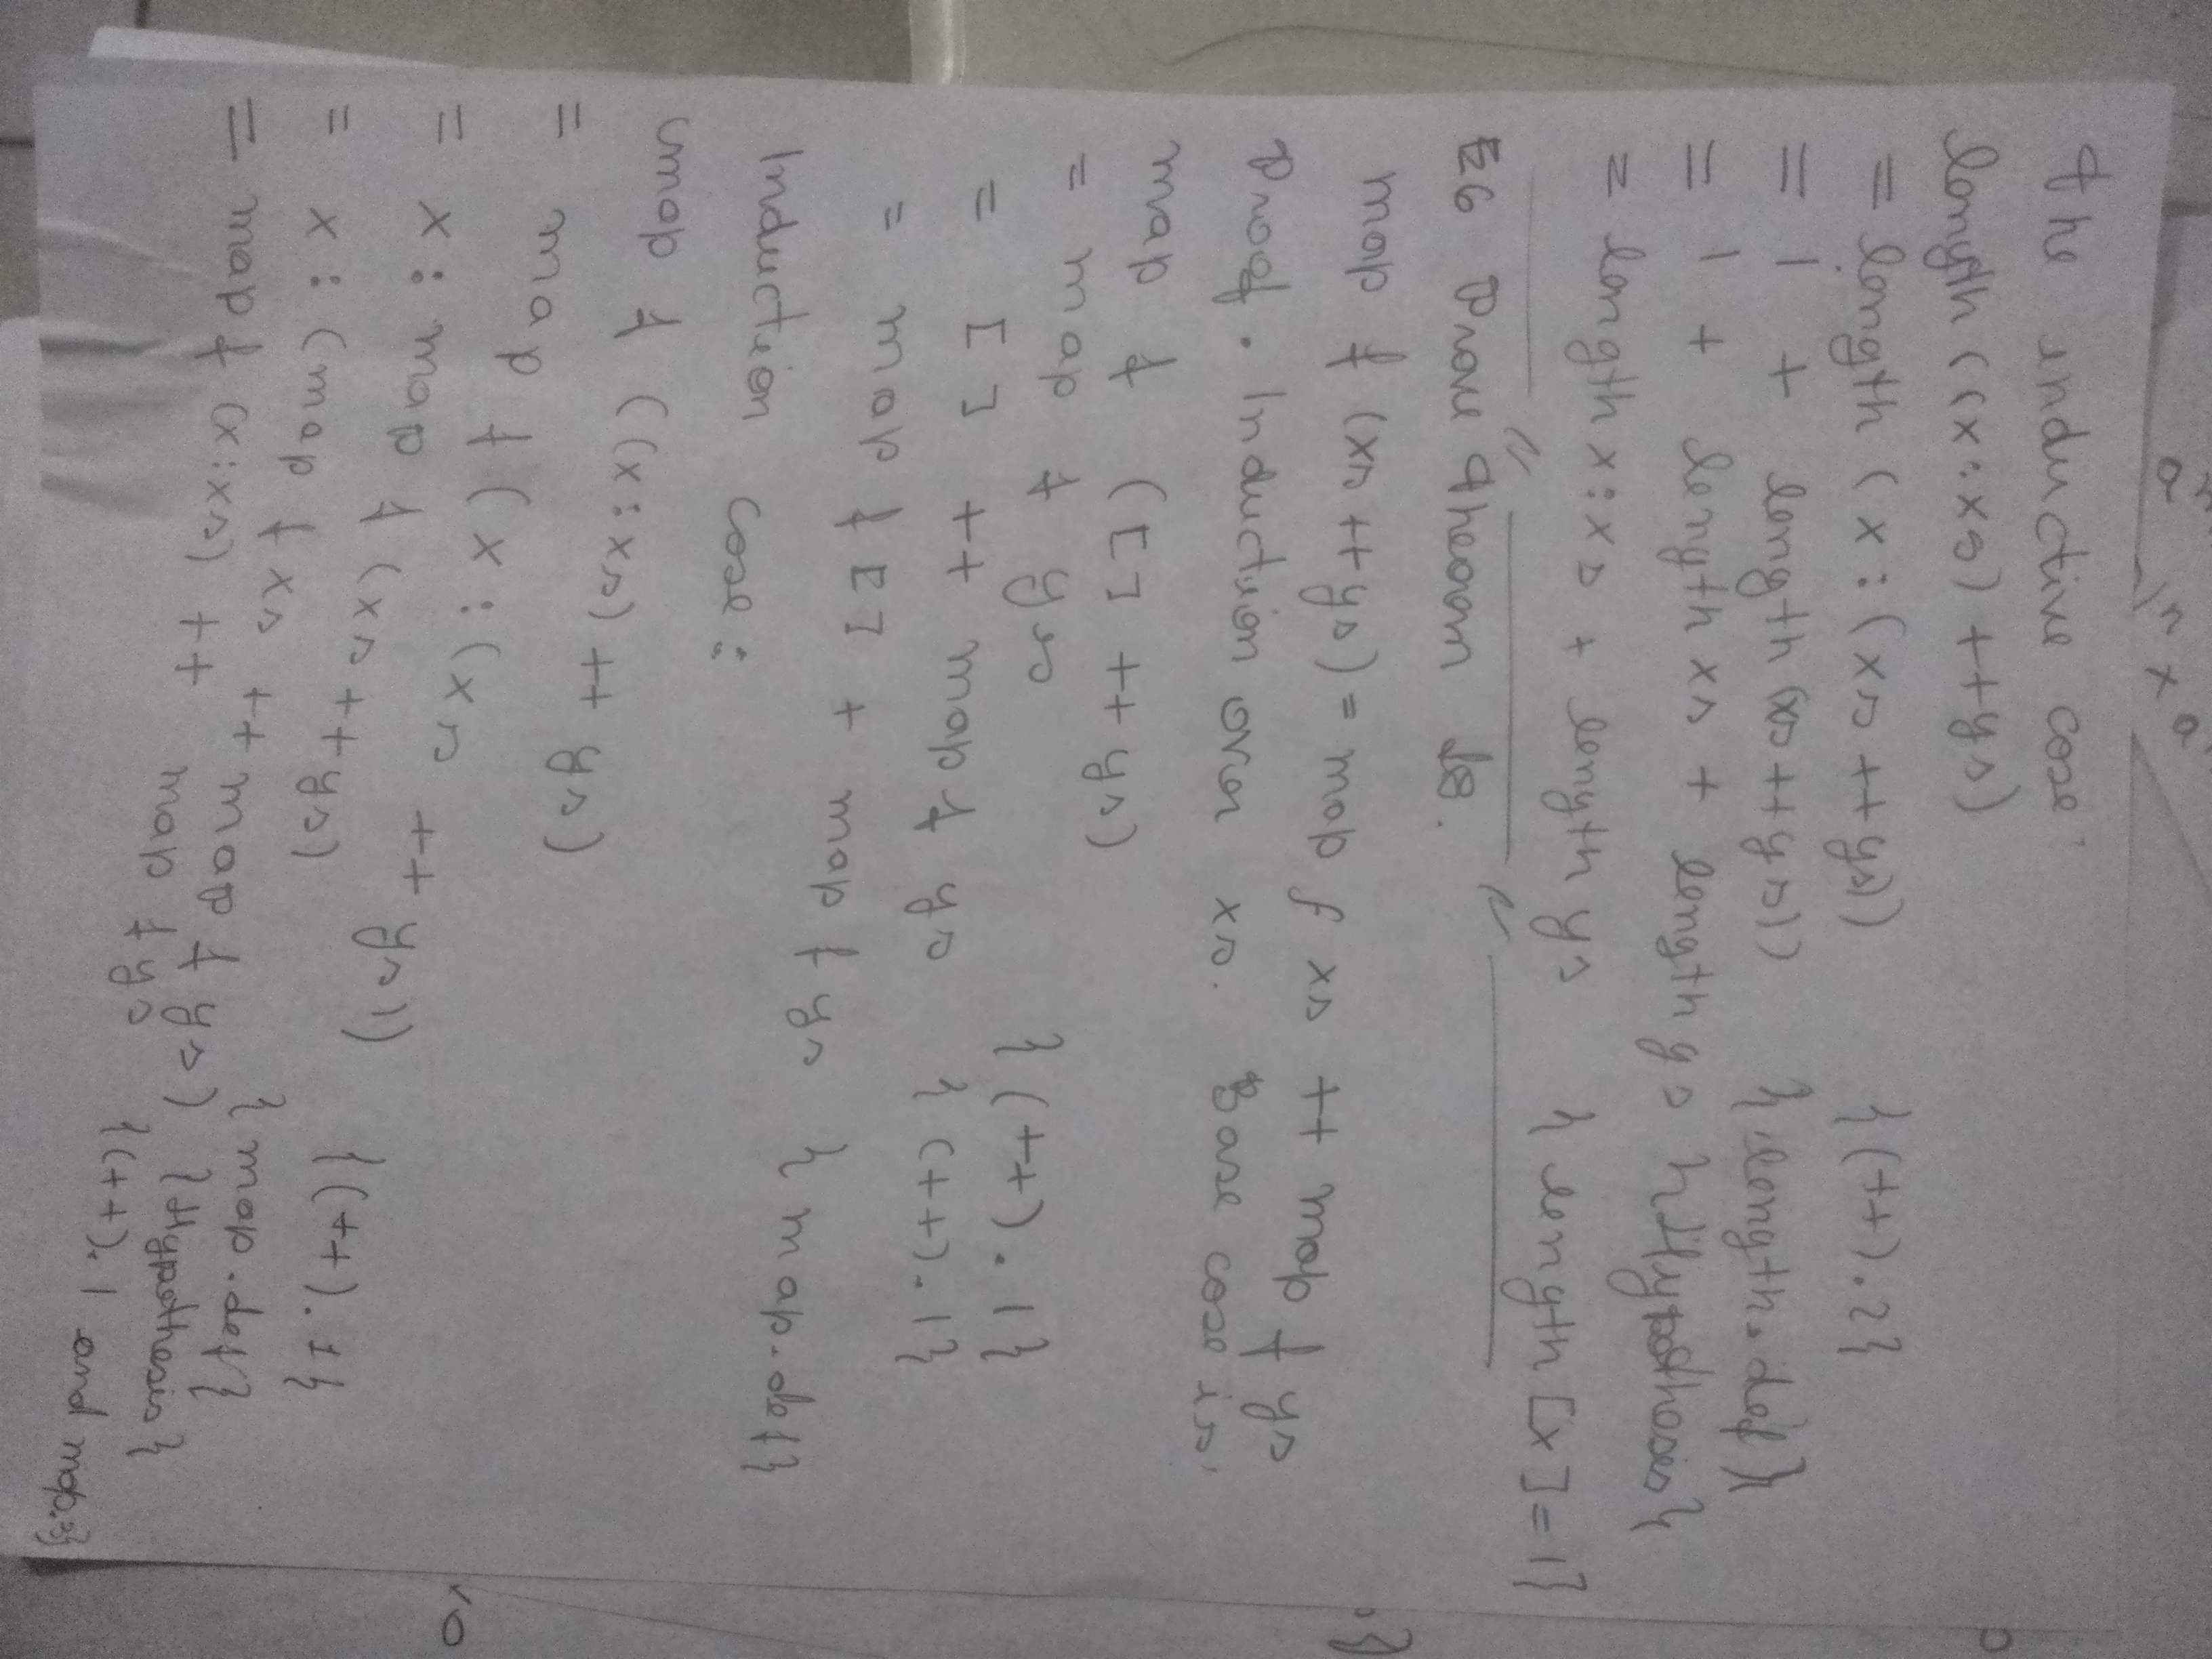 an
in x a
The inductive case:
length ((x:xs) ++ys)
= length (x : (xs ++ ys)) {(++).2}
= 1 + length (xs ++ys)) {length.def}
= 1 + length xs + length ys {Hypothesis}
= length x:xs + length ys {length [x]=1}
E6 Prove Theorem 18.
map f (xs ++ ys) = map f xs ++ map f ys
Proof. Induction over xs. Base case is:
map f ([] ++ ys)
= map f ys {(++).1}
= [] ++ map f ys {(++).1}
= map f [] + map f ys {map.def}
Induction case:
map f ((x:xs) ++ ys)
= map f (x : (xs ++ ys)) {(++).1}
= x : map f (xs ++ ys) {map.def}
= x : (map f xs ++ map f ys) {Hypothesis}
= map f (x:xs) ++ map f ys {(++).1 and map.2}